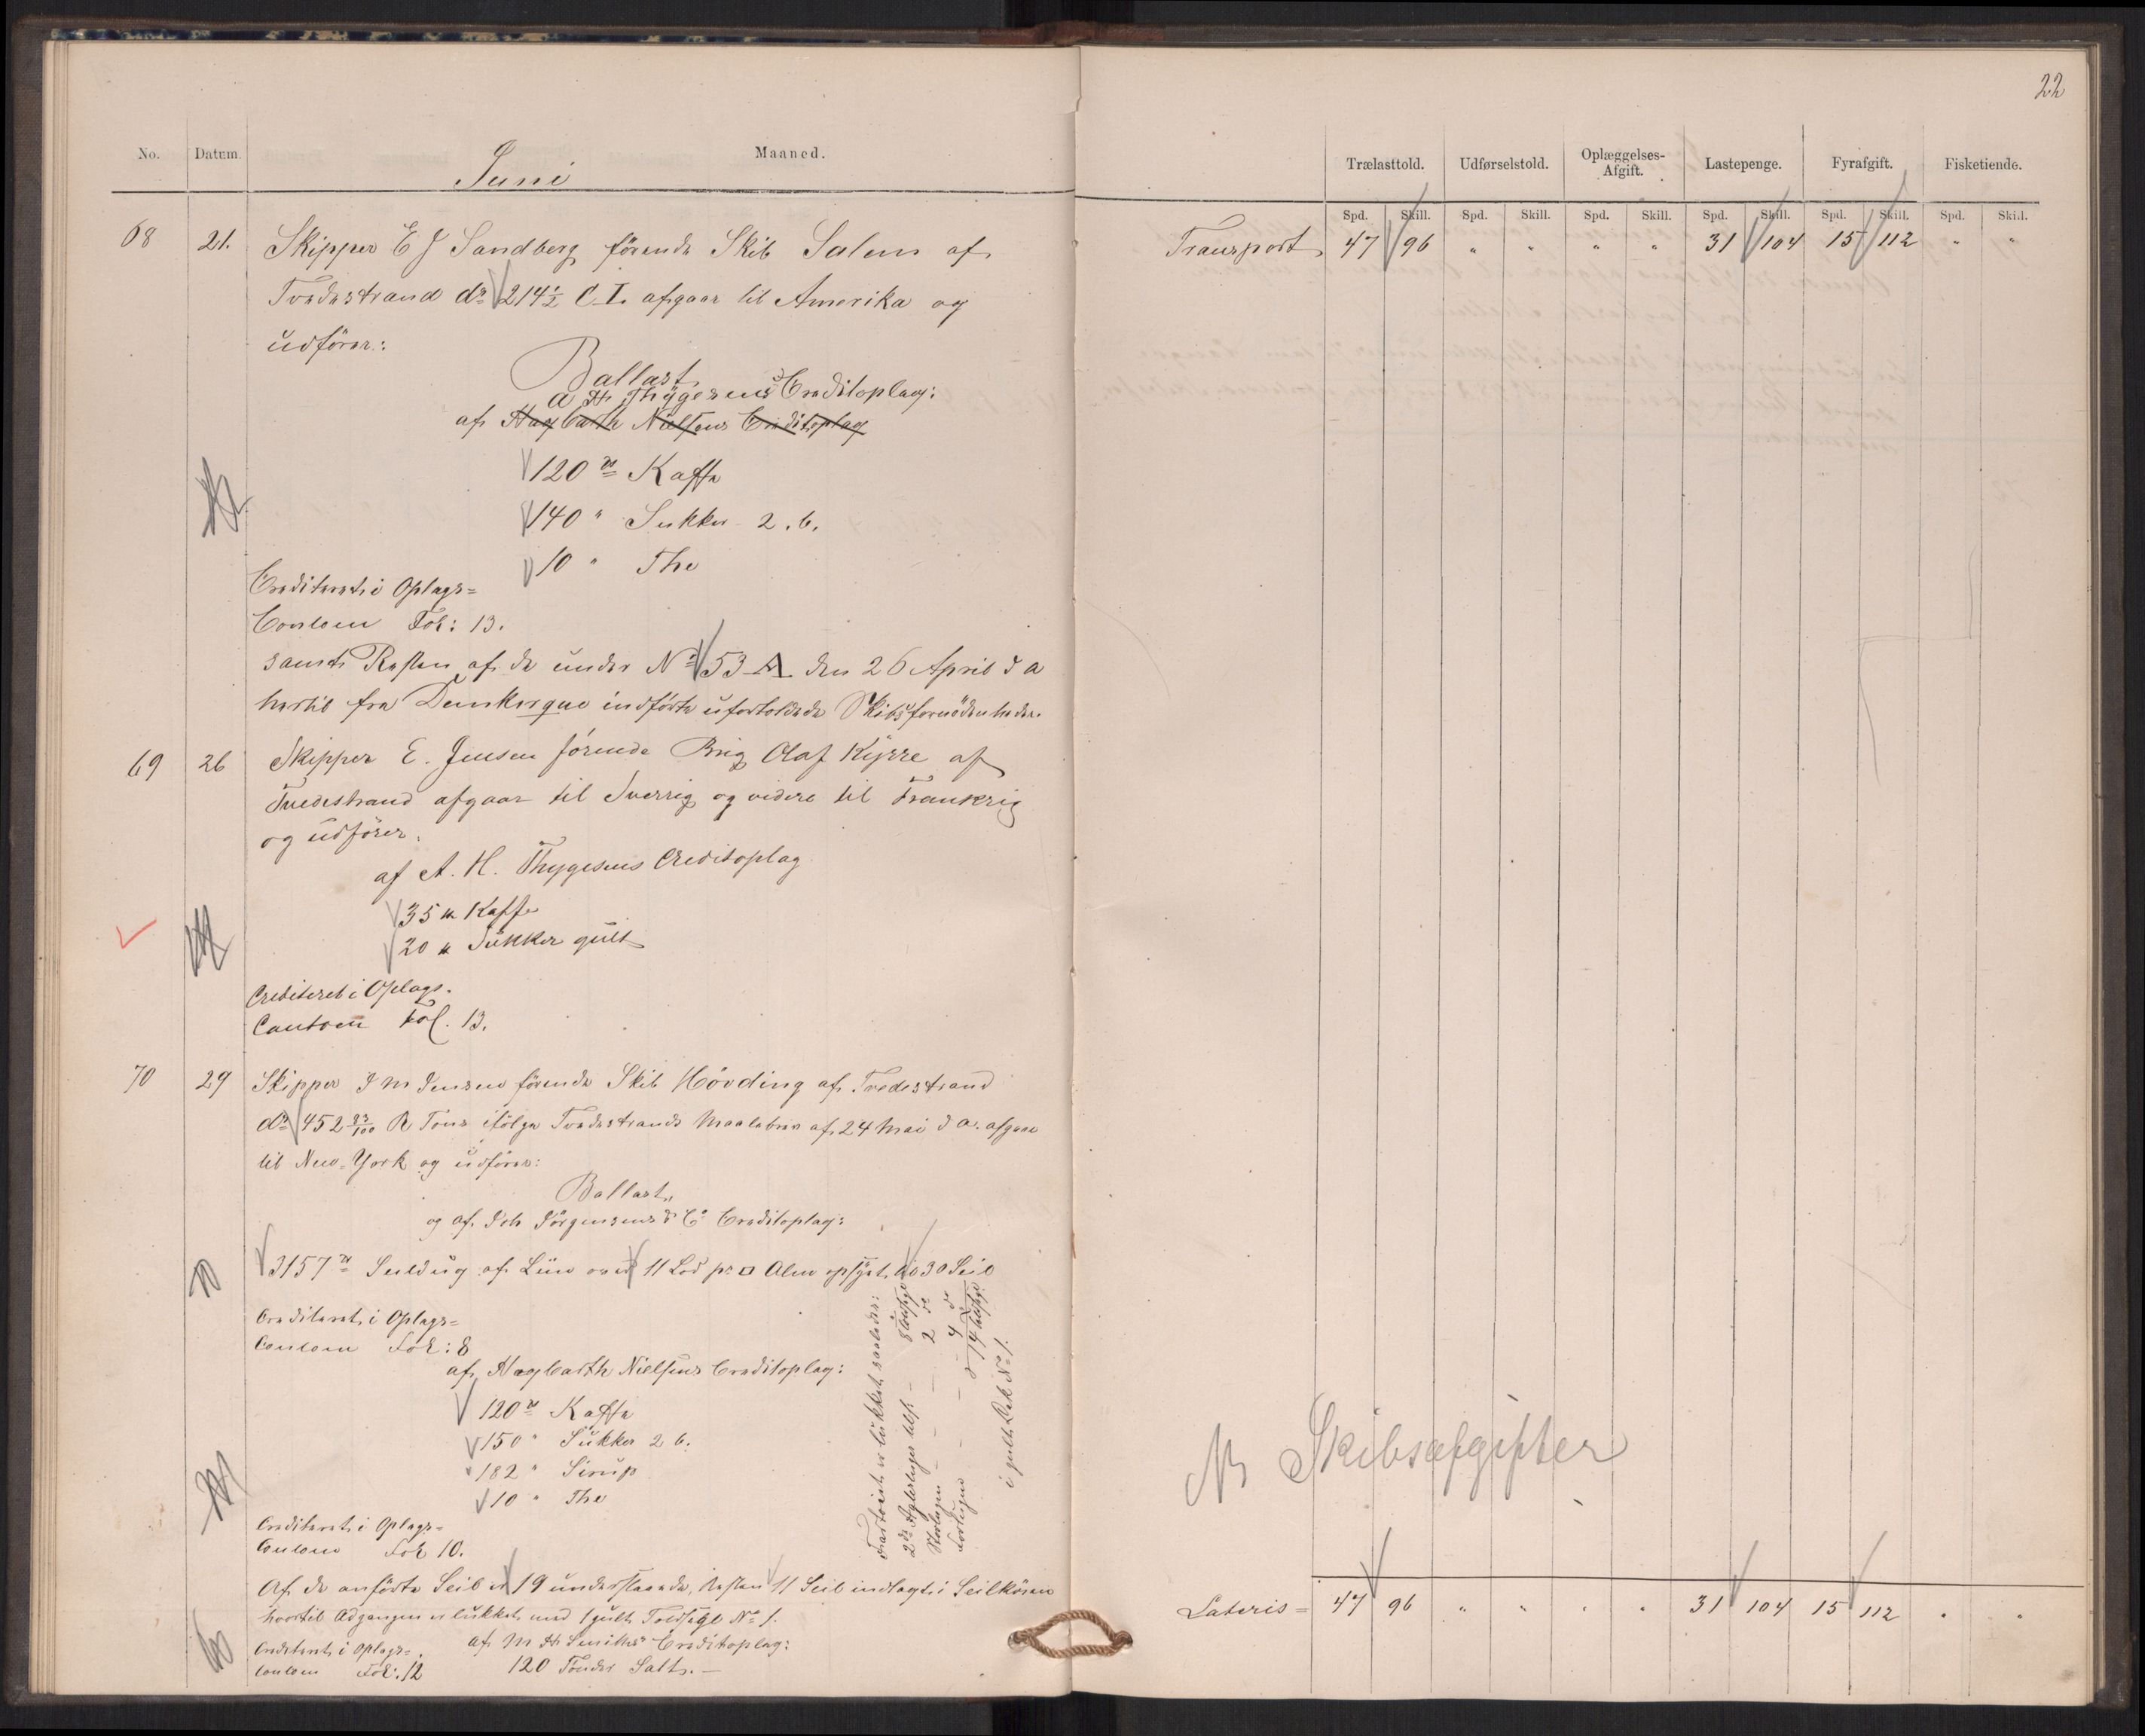 No. Datum. Juni Maaned.
68 21. Skipper E J Sandberg förende Skib Salem af
Tvedestrand dr 214½ C.L. afgaar til Amerika og
udförer:
Ballast
A H Thygesens Creditoplag:
af Hagbarth Nielsens Creditoplag
120 ℔ Kaffe
140 " Sukker 2.b.
10 " The
Crediteret i Oplags=
Contoen Fol: 13.
samt Resten af de under No 53 A den 26 April d a
hertil fra Dunkerque indförte ufortoldede Skibsfornödenheder.
69 26 Skipper E. Jensen förende Brig Olaf Kyrre af
Tvedestrand afgaar til Sverrig og videre til Frankrig
og udförer.
af A. H. Thygesens Creditoplag
35 ℔ Kaffe
20 ℔ Sukker gult
Crediteret i Oplags.
Contoen Fol. 13.
70 29 Skipper J M Jensen förende Skib Hövding af Tvedestrand
dr 452 83/100 R Tons ifölge Tvedestrands Maalebrev af 24 Mai d a. afgaar
til New=York og udförer:
Ballast,
og af Joh Jörgensens & Co Creditoplag:
3157 ℔ Seildug af Liin over 11 Lod pr □ Alen opsyet i 30 Seil
Crediteret i Oplags=
Contoen Fol: 8
af Hagbarth Nielsens Creditoplag:
120 ℔ Kaffe
150 " Sukker 2 b.
182 " Sirup
10 " The
Crediteret i Oplags=
Contoen Fol 10.
Fartöiet er lukket saaledes:
2de Agterluger
Storlugen - - 2 do
Forlugen - - 4 do
i gult Lak No 1.
Af de anförte Seil er 19 understaaende, Resten 11 Seil indlagt i Seilköien
hvortil Adgangen er lukket med 1 gult Toldsegl No 1.
af M H Smiths Creditoplag:
Crediteret i Oplags=
Contoen Fol: 12 120 Tönder Salt. —
22
Trælasttold. Udførselstold. Oplæggelses-Afgift. Lastepenge. Fyrafgift. Fisketiende.
Spd. Skill. Spd. Skill. Spd. Skill. Spd. Skill. Spd. Skill. Spd. Skill.
Transport 47 96 " " " " 31 104 15 112 " "
Skibsafgifter
Lateris = 47 96 " " " " 31 104 15 112 " "